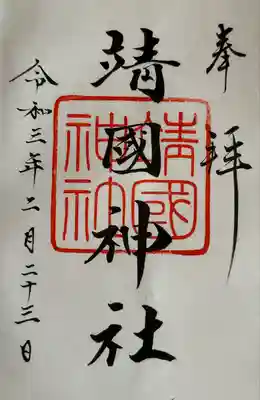 奉拝
靖國神社
靖國神社
令和三年二月二十三日